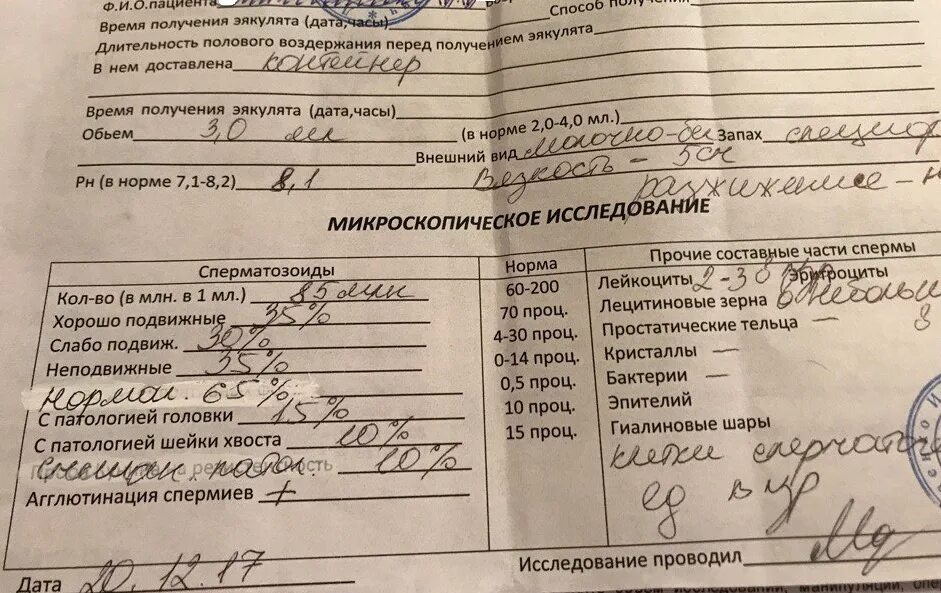 Ф.И.О.пациента
Время получения эякулята (дата,часы) Способ получения
Длительность полового воздержания перед получением эякулята
В нем доставлена контейнер
Время получения эякулята (дата,часы)
Обьем 3,0 мл (в норме 2,0-4,0 мл.)
Внешний вид молочно-бе Запах специф
Рн (в норме 7,1-8,2) 8,1 Вязкость - 5см
разжижение -
МИКРОСКОПИЧЕСКОЕ ИССЛЕДОВАНИЕ
Сперматозоиды Норма Прочие составные части спермы
Кол-во (в млн. в 1 мл.) 85 млн 60-200 Лейкоциты 2-3 Эритроциты
Хорошо подвижные 35% 70 проц. Лецитиновые зерна небольш
Слабо подвиж. 30% 4-30 проц. Простатические тельца —
Неподвижные 35% 0-14 проц. Кристаллы —
нормал. 65% 0,5 проц. Бактерии —
С патологией головки 15% 10 проц. Эпителий
С патологией шейки хвоста 10% 15 проц. Гиалиновые шары
смешан. патол. 10% клетки сперматог
Агглютинация спермиев + ед в п/зр
Исследование проводил
Дата 20.12.17